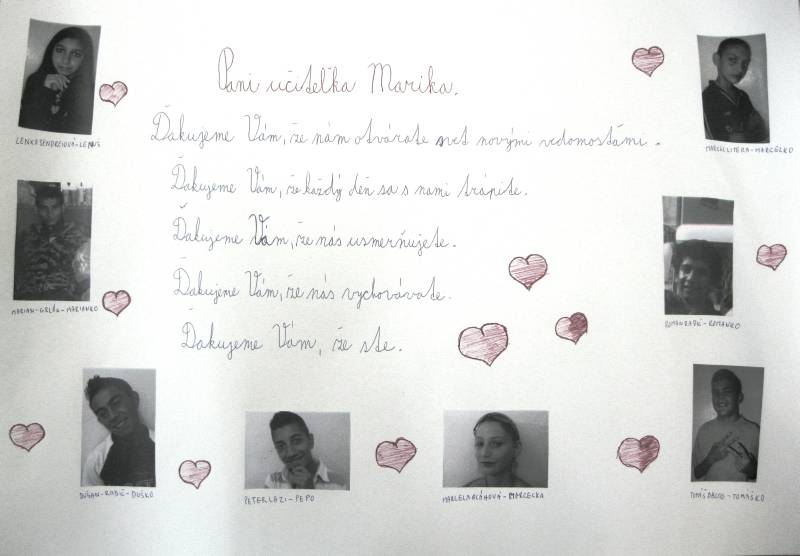 Pani učiteľka Marika.
Ďakujeme Vám, že nám otvárate svet novými vedomosťami.
Ďakujeme Vám, že každý deň sa s nami trápite.
Ďakujeme Vám, že nás usmerňujete.
Ďakujeme Vám, že nás vychovávate.
Ďakujeme Vám, že ste.
MARCEL LITERA-MARCELKO
MARIAN-GRLÁK-MARIANKO
ROMAN RADIČ-ROMANKO
DUŠAN-RADIČ-DUŠKO
PETER LAZI-PEPO
MARCELA OLÁHOVÁ-MARCELKA